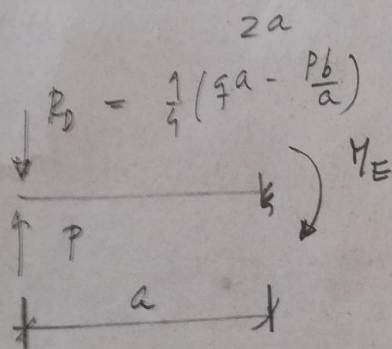 2a
R_D = 1/4 (qa - Pb/a)
M_E
P
a